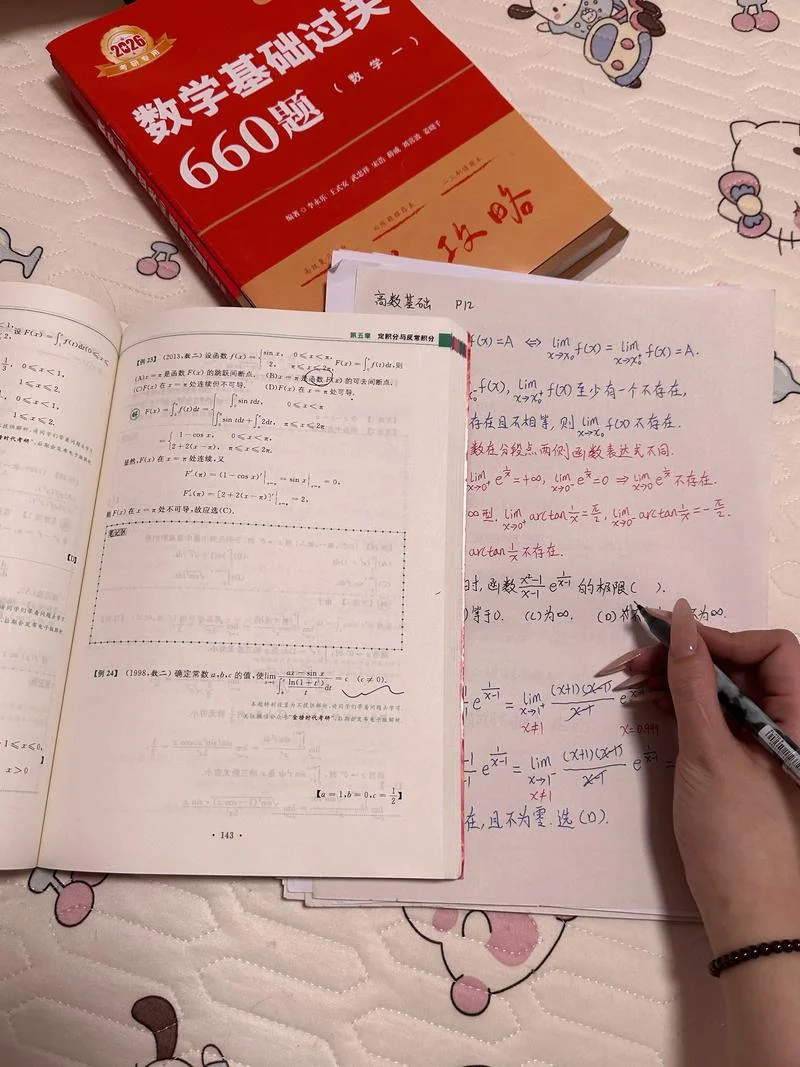 2026
考研专用
数学基础过关
660题
(数学一)
编著 李永乐 王式安 武忠祥 宋浩 薛威 刘喜波 姜晓千
攻略
设 F(x)=∫
0≤x<1,
1≤x≤2.
1≤x≤2.
【D】
x>0
第五章 定积分与反常积分
【例 23】 (2013,数二) 设函数 f(x)={ sin x, 0≤x<π, F(x)=∫₀ˣ f(t)dt,则
2, π≤x≤2π,
(A)x=π 是函数 F(x) 的跳跃间断点. (B)x=π 是函数 F(x) 的可去间断点.
(C)F(x) 在 x=π 处连续但不可导. (D)F(x) 在 x=π 处可导.
解 F(x)=∫₀ˣ f(t)dt={ ∫₀ˣ sin tdt, 0≤x<π
∫₀^π sin tdt+∫_π^x 2dt, π≤x≤2π
={ 1-cos x, 0≤x<π,
2+2(x-π), π≤x≤2π.
显然,F(x) 在 x=π 处连续,又
F'₋(π)=(1-cos x)'|ₓ₌π=sin x|ₓ₌π=0,
F'₊(π)=[2+2(x-π)]'|ₓ₌π=2,
则 F(x) 在 x=π 处不可导,故应选(C).
笔记区
【例 24】 (1998,数二) 确定常数 a,b,c 的值,使 lim_{x→0} (ax-sin x)/(∫_b^x ln(1+t³)/t dt)=c (c≠0).
【a=1,b=0,c=1/2】
· 143 ·
高数基础 P12
f(x)=A ⇔ lim_{x→x₀⁻} f(x)=lim_{x→x₀⁺} f(x)=A.
f(x), lim_{x→x₀⁺} f(x)至少有一个不存在,
存在且不相等, 则 lim_{x→x₀} f(x)不存在.
数在分段点两侧函数表达式不同.
lim_{x→0⁺} e^{1/x}=+∞, lim_{x→0⁻} e^{1/x}=0 ⇒ lim_{x→0} e^{1/x}不存在.
∞型, lim_{x→0⁺} arctan 1/x=π/2, lim_{x→0⁻} arctan 1/x=-π/2.
arctan 1/x 不存在.
时, 函数 (x²-1)/(x-1) e^{1/(x-1)} 的极限( ).
)等于0. (C)为∞. (D) 为∞.
e^{1/(x-1)}=lim_{x→1⁺} (x+1)(x-1)/(x-1) e
x≠1 x=0.999
e^{1/(x-1)}=lim_{x→1⁻} (x+1)(x-1)/(x-1) e^{1/(x-1)}=
x≠1
在, 且不为零. 选(D).